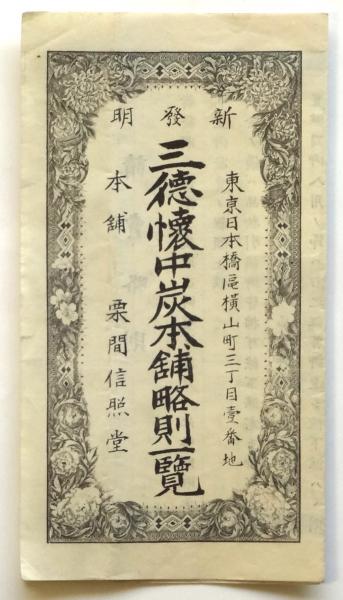 新發明
東京日本橋區橫山町三丁目壹番地
三德懷中炭本舖略則一覽
本舖 栗間信照堂